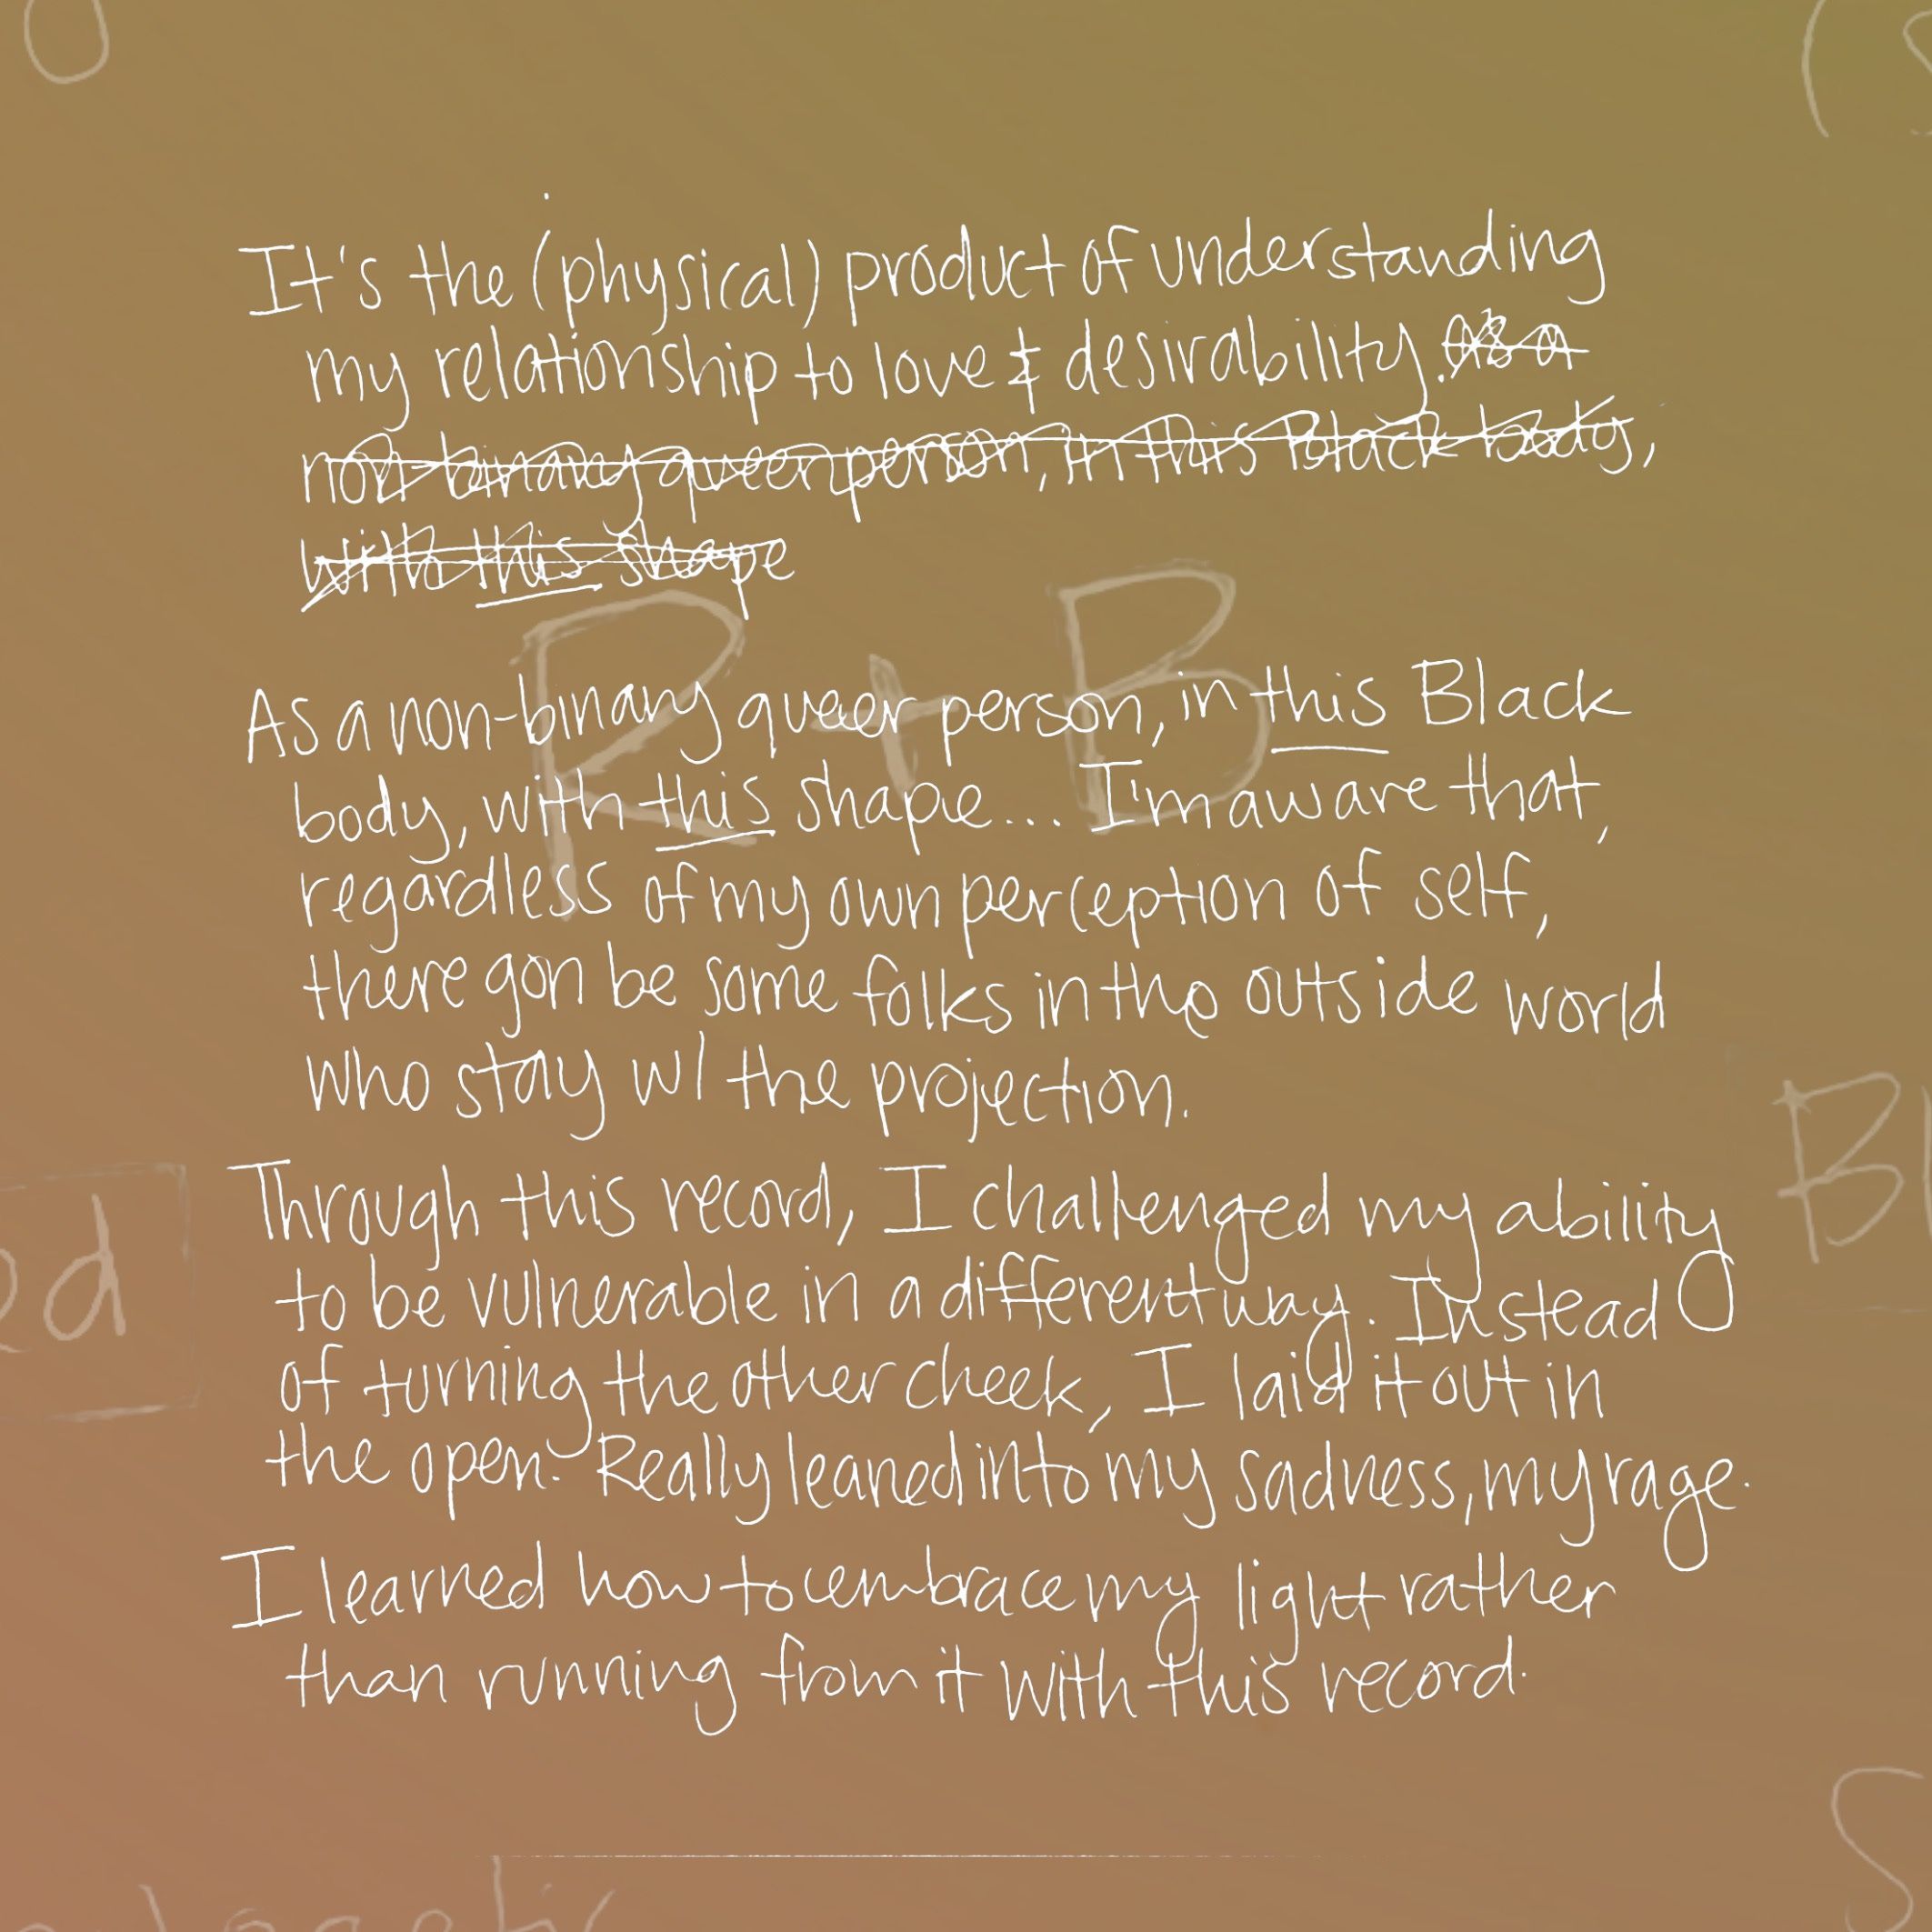 It's the (physical) product of understanding
my relationship to love & desirability. As a
non-binary queer person, in this Black body,
with this shape
R + B
As a non-binary queer person, in this Black
body, with this shape... I'm aware that,
regardless of my own perception of self,
there gon be some folks in the outside world
who stay w/ the projection.
Through this record, I challenged my ability
to be vulnerable in a different way. Instead
of turning the other cheek, I laid it out in
the open. Really leaned into my sadness, my rage.
I learned how to embrace my light rather
than running from it with this record.